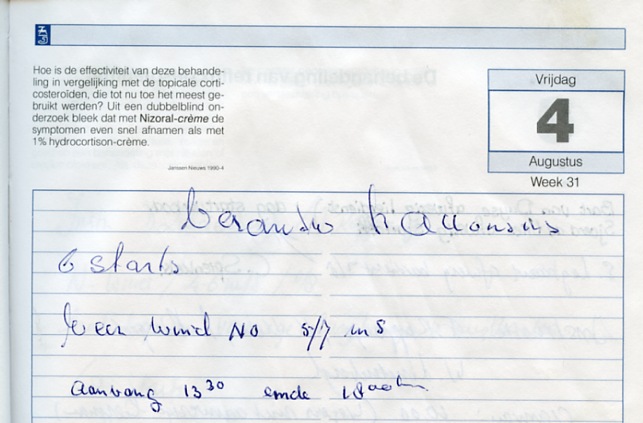 Hoe is de effectiviteit van deze behande-
ling in vergelijking met de topicale corti-
costeroïden, die tot nu toe het meest ge-
bruikt werden? Uit een dubbelblind on-
derzoek bleek dat met Nizoral-crème de
symptomen even snel afnamen als met
1% hydrocortison-crème.
Janssen Nieuws 1990-4
Vrijdag
4
Augustus
Week 31
6 starts
wind NO 5/7 m S
aanvang 13 30 einde 18